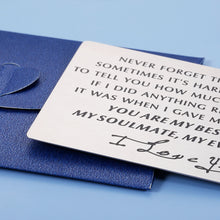 NEVER FORGET
SOMETIMES IT'S HAR
TO TELL YOU HOW MUCH
IF I DID ANYTHING R
IT WAS WHEN I GAVE M
YOU ARE MY BES
MY SOULMATE, MY EV
I Love Y